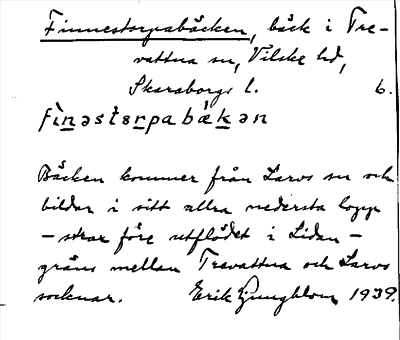 Finnestorpabäcken, bäck i Tre-
vattna sn, Vilske hd,
Skaraborgs l. 6.
fìnəstɷrpabækən
Bäcken kommer från Larvs sn och
bildar i sitt allra nedersta lopp
– strax före utflödet i Lidan –
gräns mellan Trevattna och Larvs
socknar. Erik Ljungblom 1939.